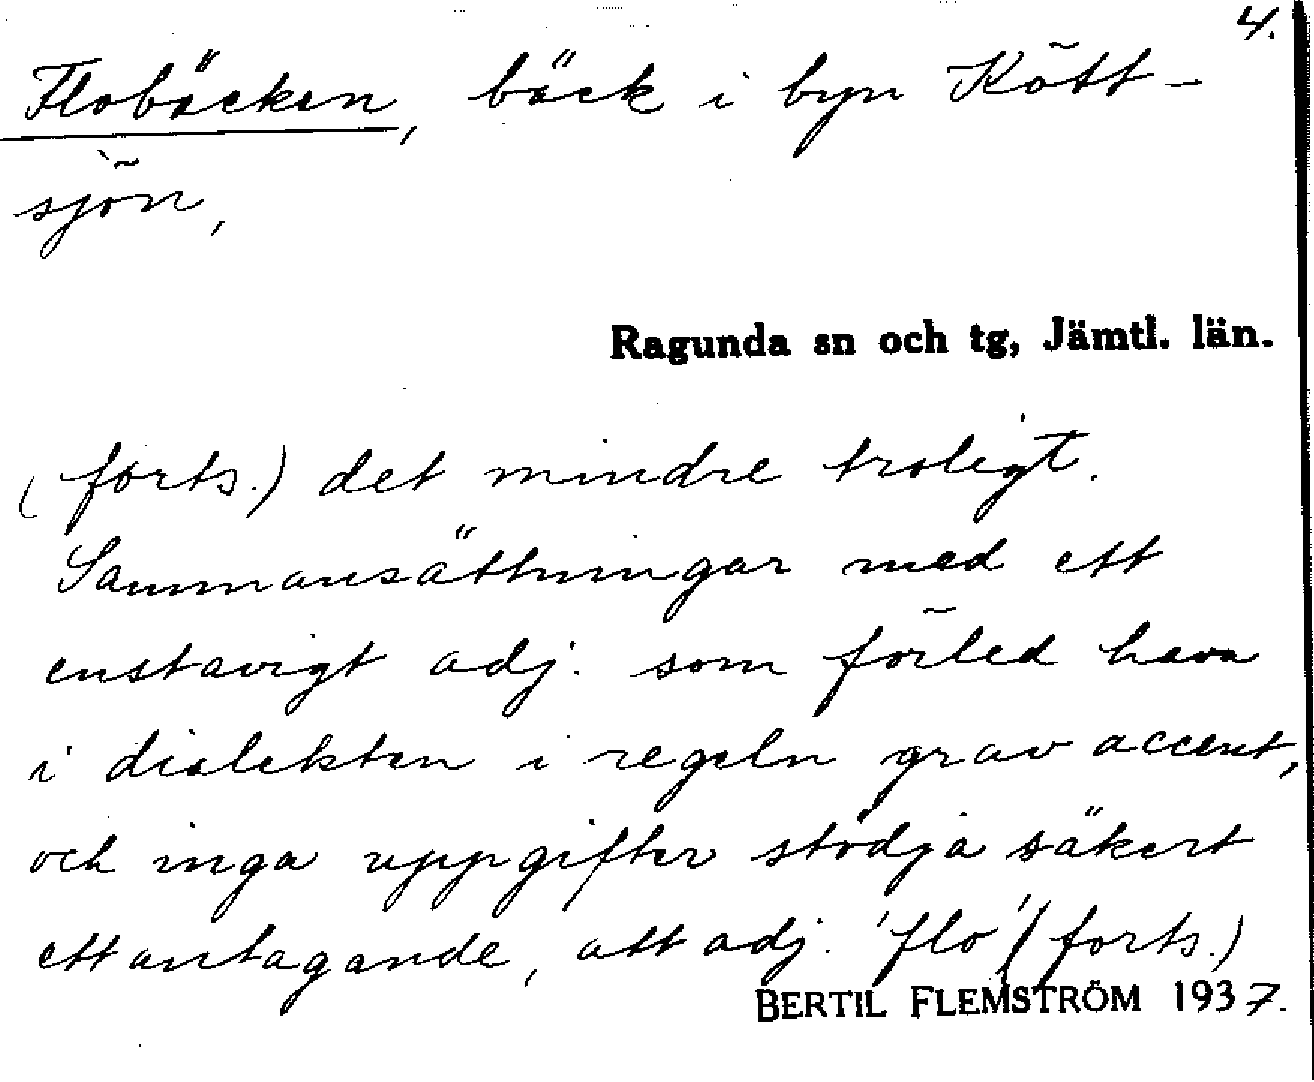 4.
Flobäcken, bäck i byn Kött-
sjön,
Ragunda sn och tg, Jämtl. län.
(forts.) det mindre troligt.
Sammansättningar med ett
enstavigt adj. som förled hava
i dialekten i regeln grav accent,
och inga uppgifter stödja säkert
ett antagande, att adj. 'flo' (forts.)
BERTIL FLEMSTRÖM 1937.